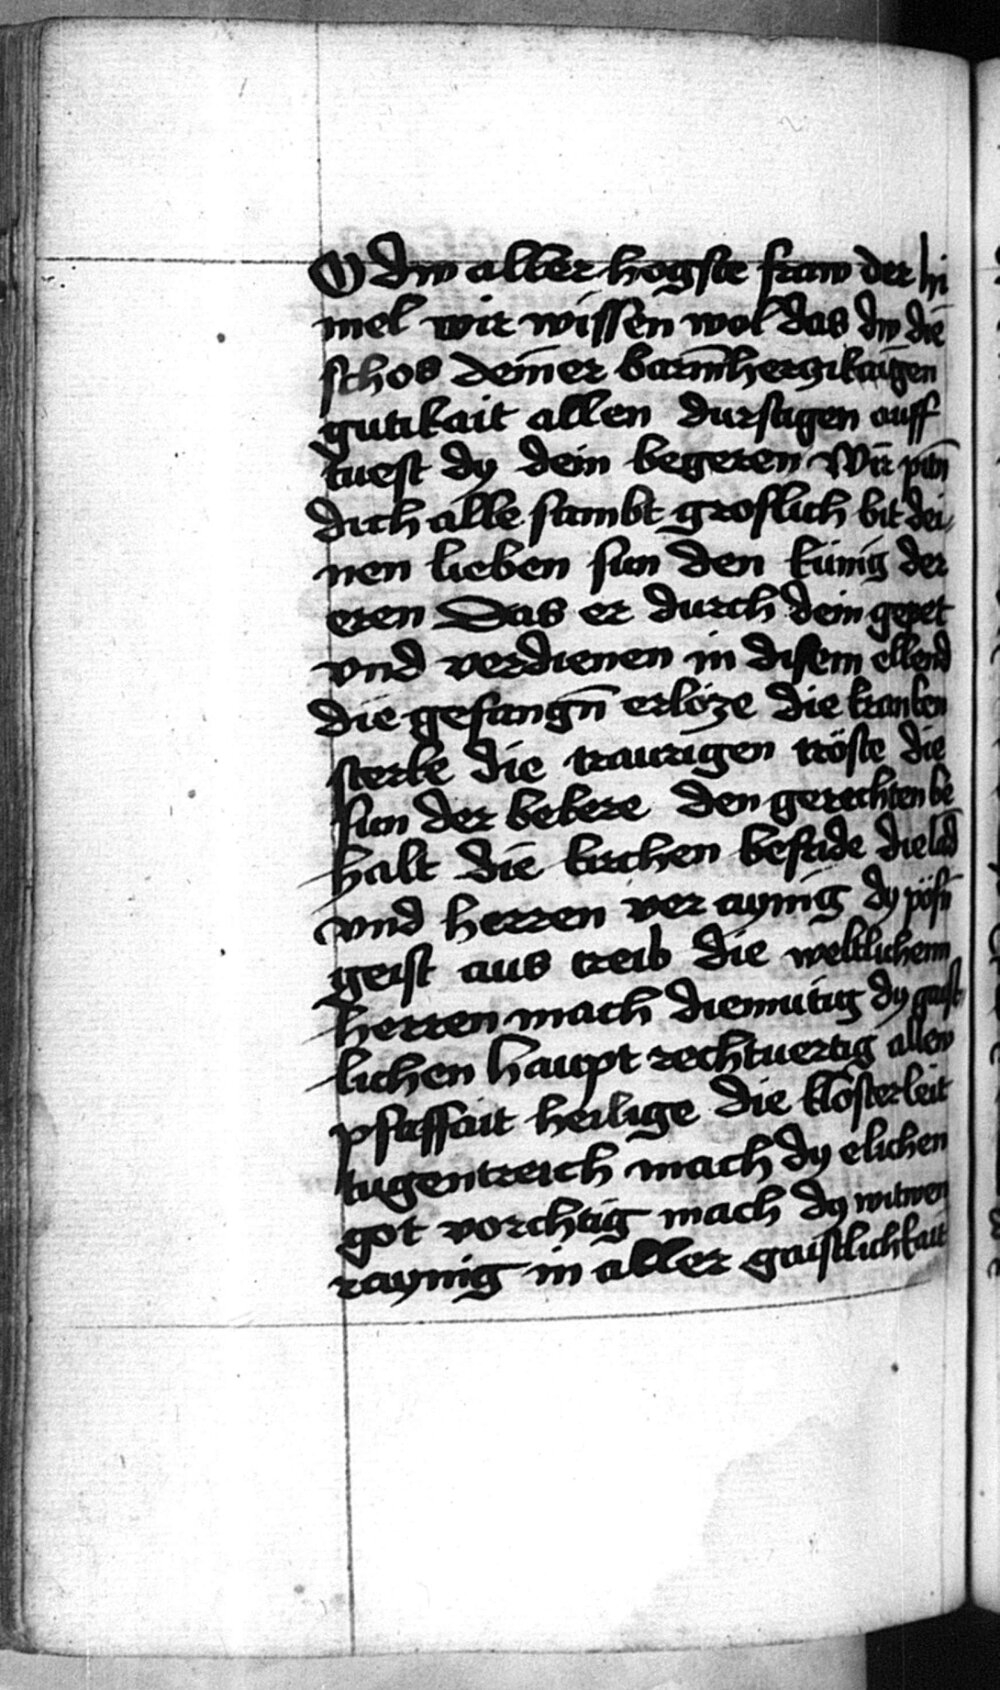 O Dw aller hogste fraw der hi
mel wir wissen wol das dw die
schos deiner barm̄herczikaigen
gutikait allen durstigen auff
tuest dy dein begeren Wir pitn̄
dich alle sambt groslich bit dei
nen lieben sun den künig der
eren Das er durch dein gepet
vnd verdienen in disem ellend
die gefangn̄ erlöze die kranken
sterke die traurigen tröste die
sun der bekere den gerechten be
halt die kirchen befride die lād
vnd herren ver aynig dy pösn̄
geist aus treib die weltlichenn
herren mach diemutig dy gaist
lichen haupt rechtuertig allew
pfaffait heilige die klosterleit
tugentreich mach dy elichen
got vorchtig mach dy witwen
raynig in aller gaistlichkait